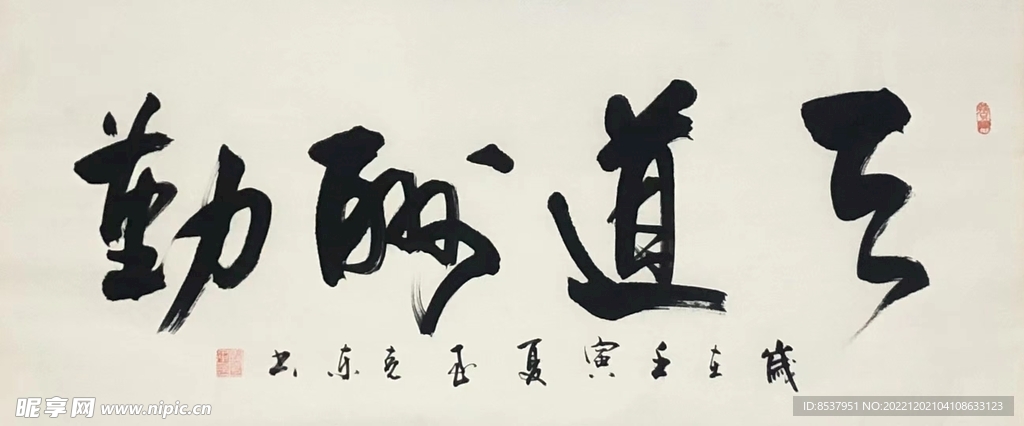 天道酬勤
岁在壬寅夏孟克东书
昵享网 www.nipic.cn
ID:8537951 NO:20221202104108633123